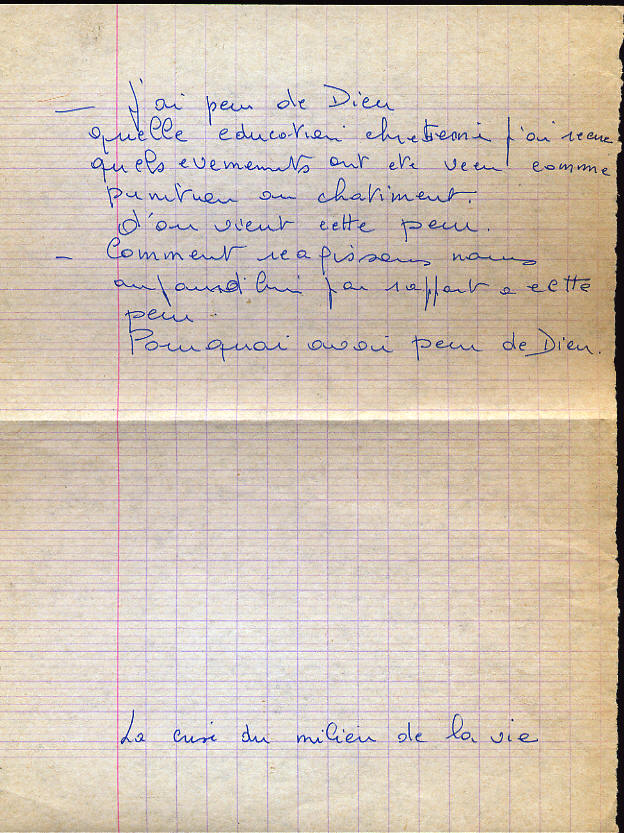 — j'ai peur de Dieu
quelle education chretienni j'ai recue
quels evements ont ete vecu comme
punition ou chatiment.
d'ou vient cette peur.
– Comment reagissons nous
aujourd'hui par rapport a cette
peur
Pourquoi avoir peur de Dieu.
La crise du milieu de la vie